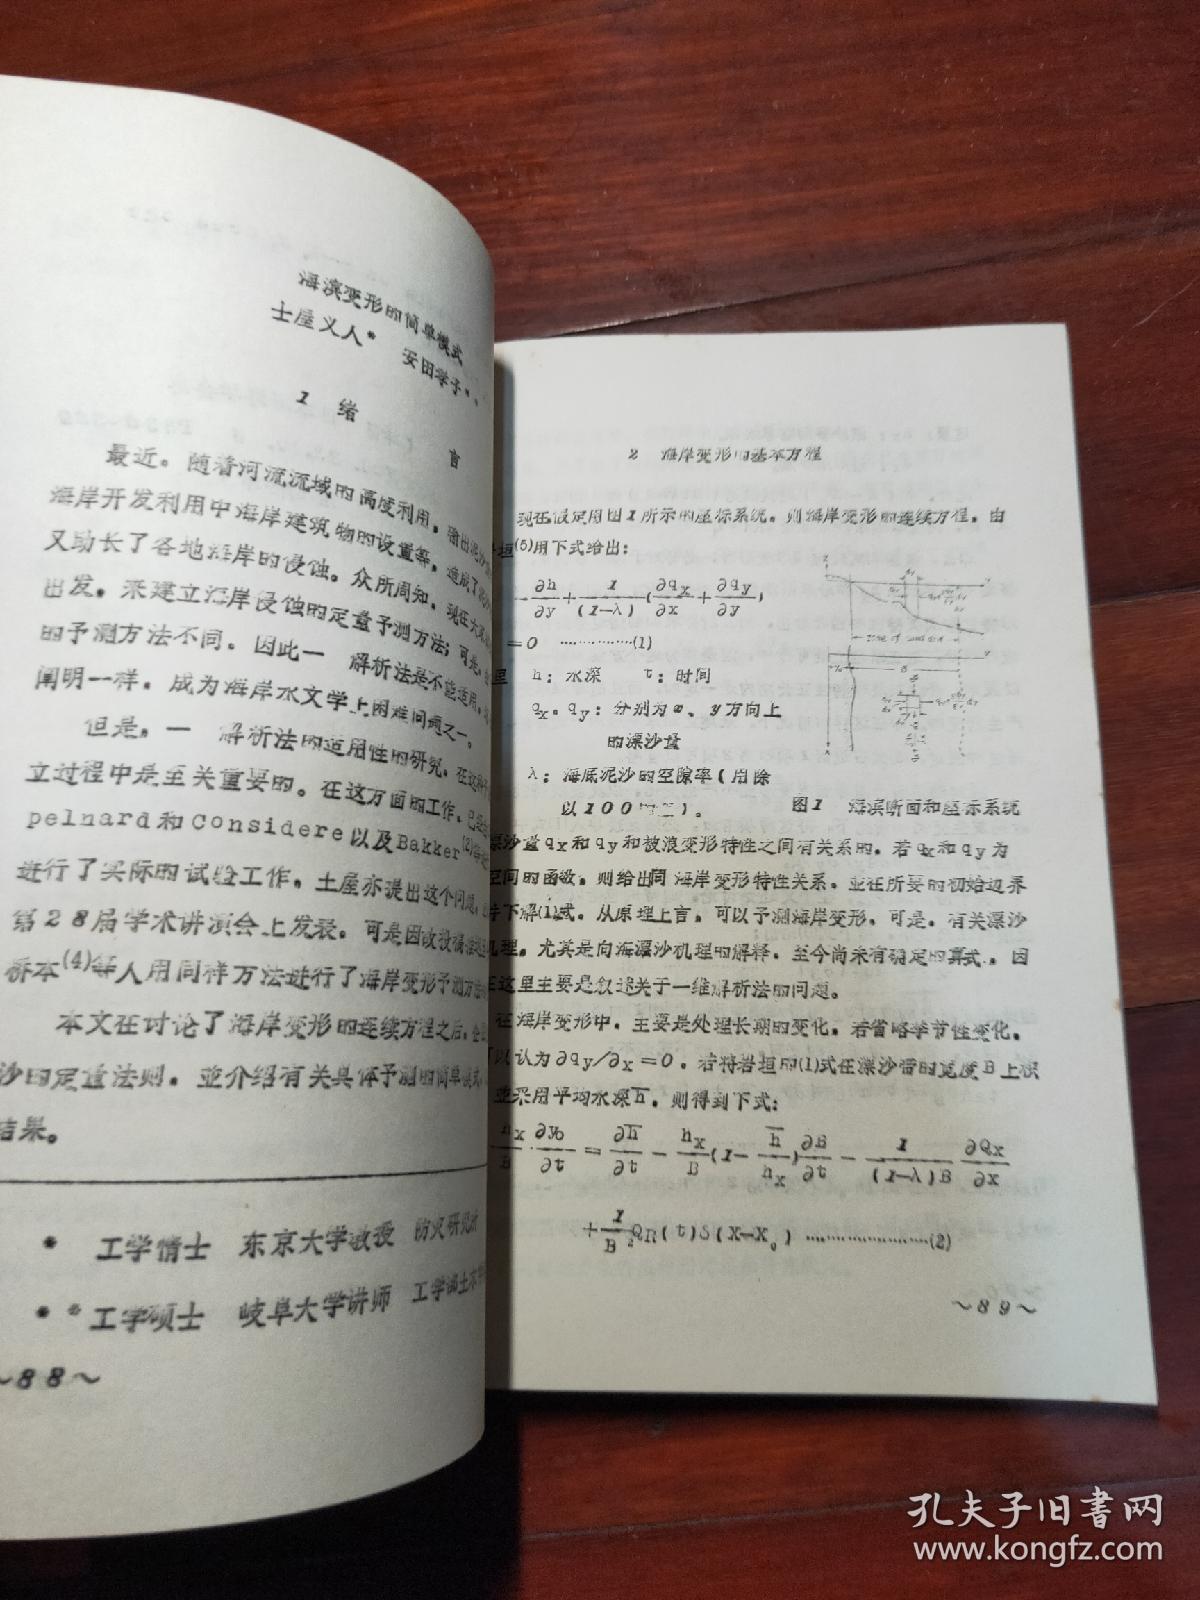 海滨变形的简单模式
士屋义人* 安田孝子**
1 绪 言
最近。随着河流流域的高度利用。输出泥沙
海岸开发利用中海岸建筑物的设置等。造成了
又助长了各地海岸的侵蚀。众所周知。现在大
出发。来建立海岸侵蚀的定量予测方法;可是。
的予测方法不同。因此一 解析法是不能适用。
阐明一样。成为海岸水文学上困难问题之一。
但是。一 解析法的适用性的研究。在这种
立过程中是至关重要的。在这方面的工作。已经
pelnard和Considere以及Bakker(2)等
进行了实际的试验工作。土屋亦提出这个问题。
第28届学术讲演会上发表。可是因
桥本(4)等人用同样方法进行了海岸变形予测方法
本文在讨论了海岸变形的连续方程之后。
沙的定量法则。並介绍有关具体予测的简单模式
结果。
* 工学情士 东京大学教授 防灾研究所
** 工学硕士 岐阜大学讲师 工学
~88~
2 海岸变形的基本方程
现在假定用图1所示的座标系统。则海岸变形的连续方程。由
垣(5)用下式给出:
∂h/∂y + 1/(1-λ) (∂qx/∂x + ∂qy/∂y)
=0 ……………(1)
里 h:水深 t:时间
qx。qy:分别为x、y方向上
的漂沙量
λ:海底泥沙的空隙率(用除
以100的值)。
图1 海滨断面和座标系统
漂沙量qx和qy和被浪变形特性之间有关系的。若qx和qy为
空间的函数。则给出同 海岸变形特性关系。並在所要的初始边界
件下解(1)式。从原理上言。可以予测海岸变形。可是。有关漂沙
机理。尤其是向海漂沙机理的解释。至今尚未有确定的算式。因
在这里主要是叙述关于一维解析法的问题。
在海岸变形中。主要是处理长期的变化。若省略季节性变化。
可以认为∂qy/∂x=0。若将岩垣的(1)式在漂沙带的宽度B上积
並采用平均水深h̅。则得到下式:
hx/B ∂y₀/∂t = ∂h̅/∂t - hx/B (1 - h̅/hx) ∂B/∂t - 1/((1-λ)B) ∂Qx/∂x
+ 1/B² QR(t)δ(x-x₀) ……………………(2)
~89~
孔夫子旧书网
www.kongfz.com